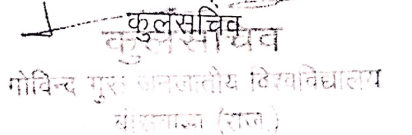 कुलसचिव
कुलसचिव
गोविन्द गुरु जनजातीय विश्वविद्यालय
बांसवाड़ा (राज.)